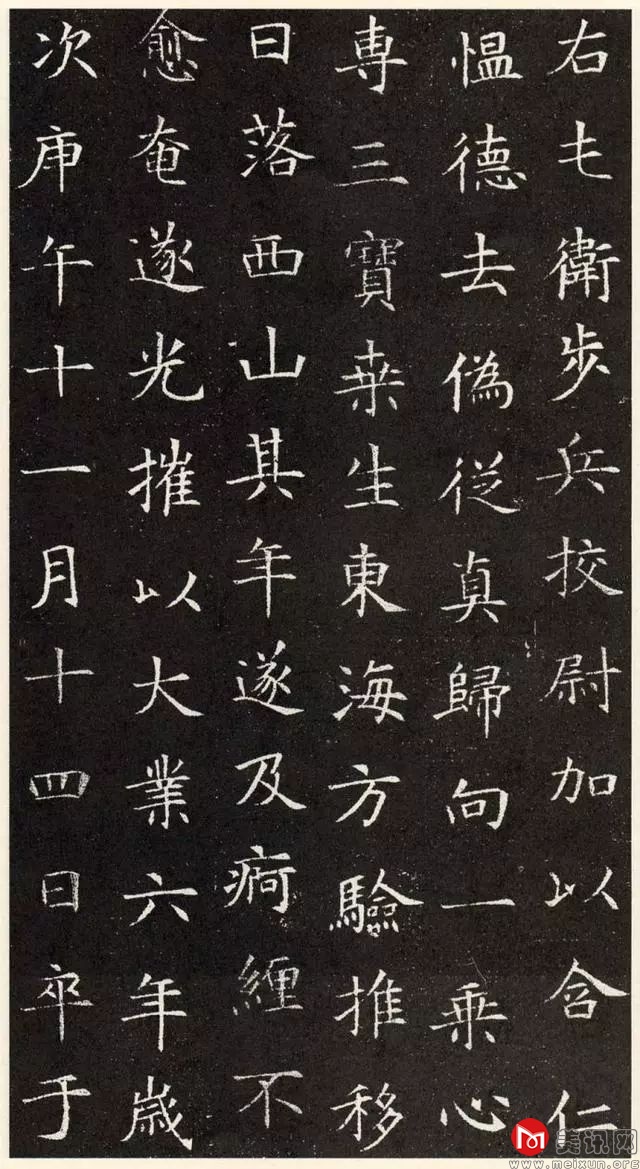 右屯衛步兵挍尉加以含仁
愠德去偽從真歸向一乗心
専三寶桒生東海方驗推移
日落西山其年遂及痾纏不
愈奄遂光摧以大業六年歲
次庚午十一月十四日卒于
美讯网
www.meixun.org